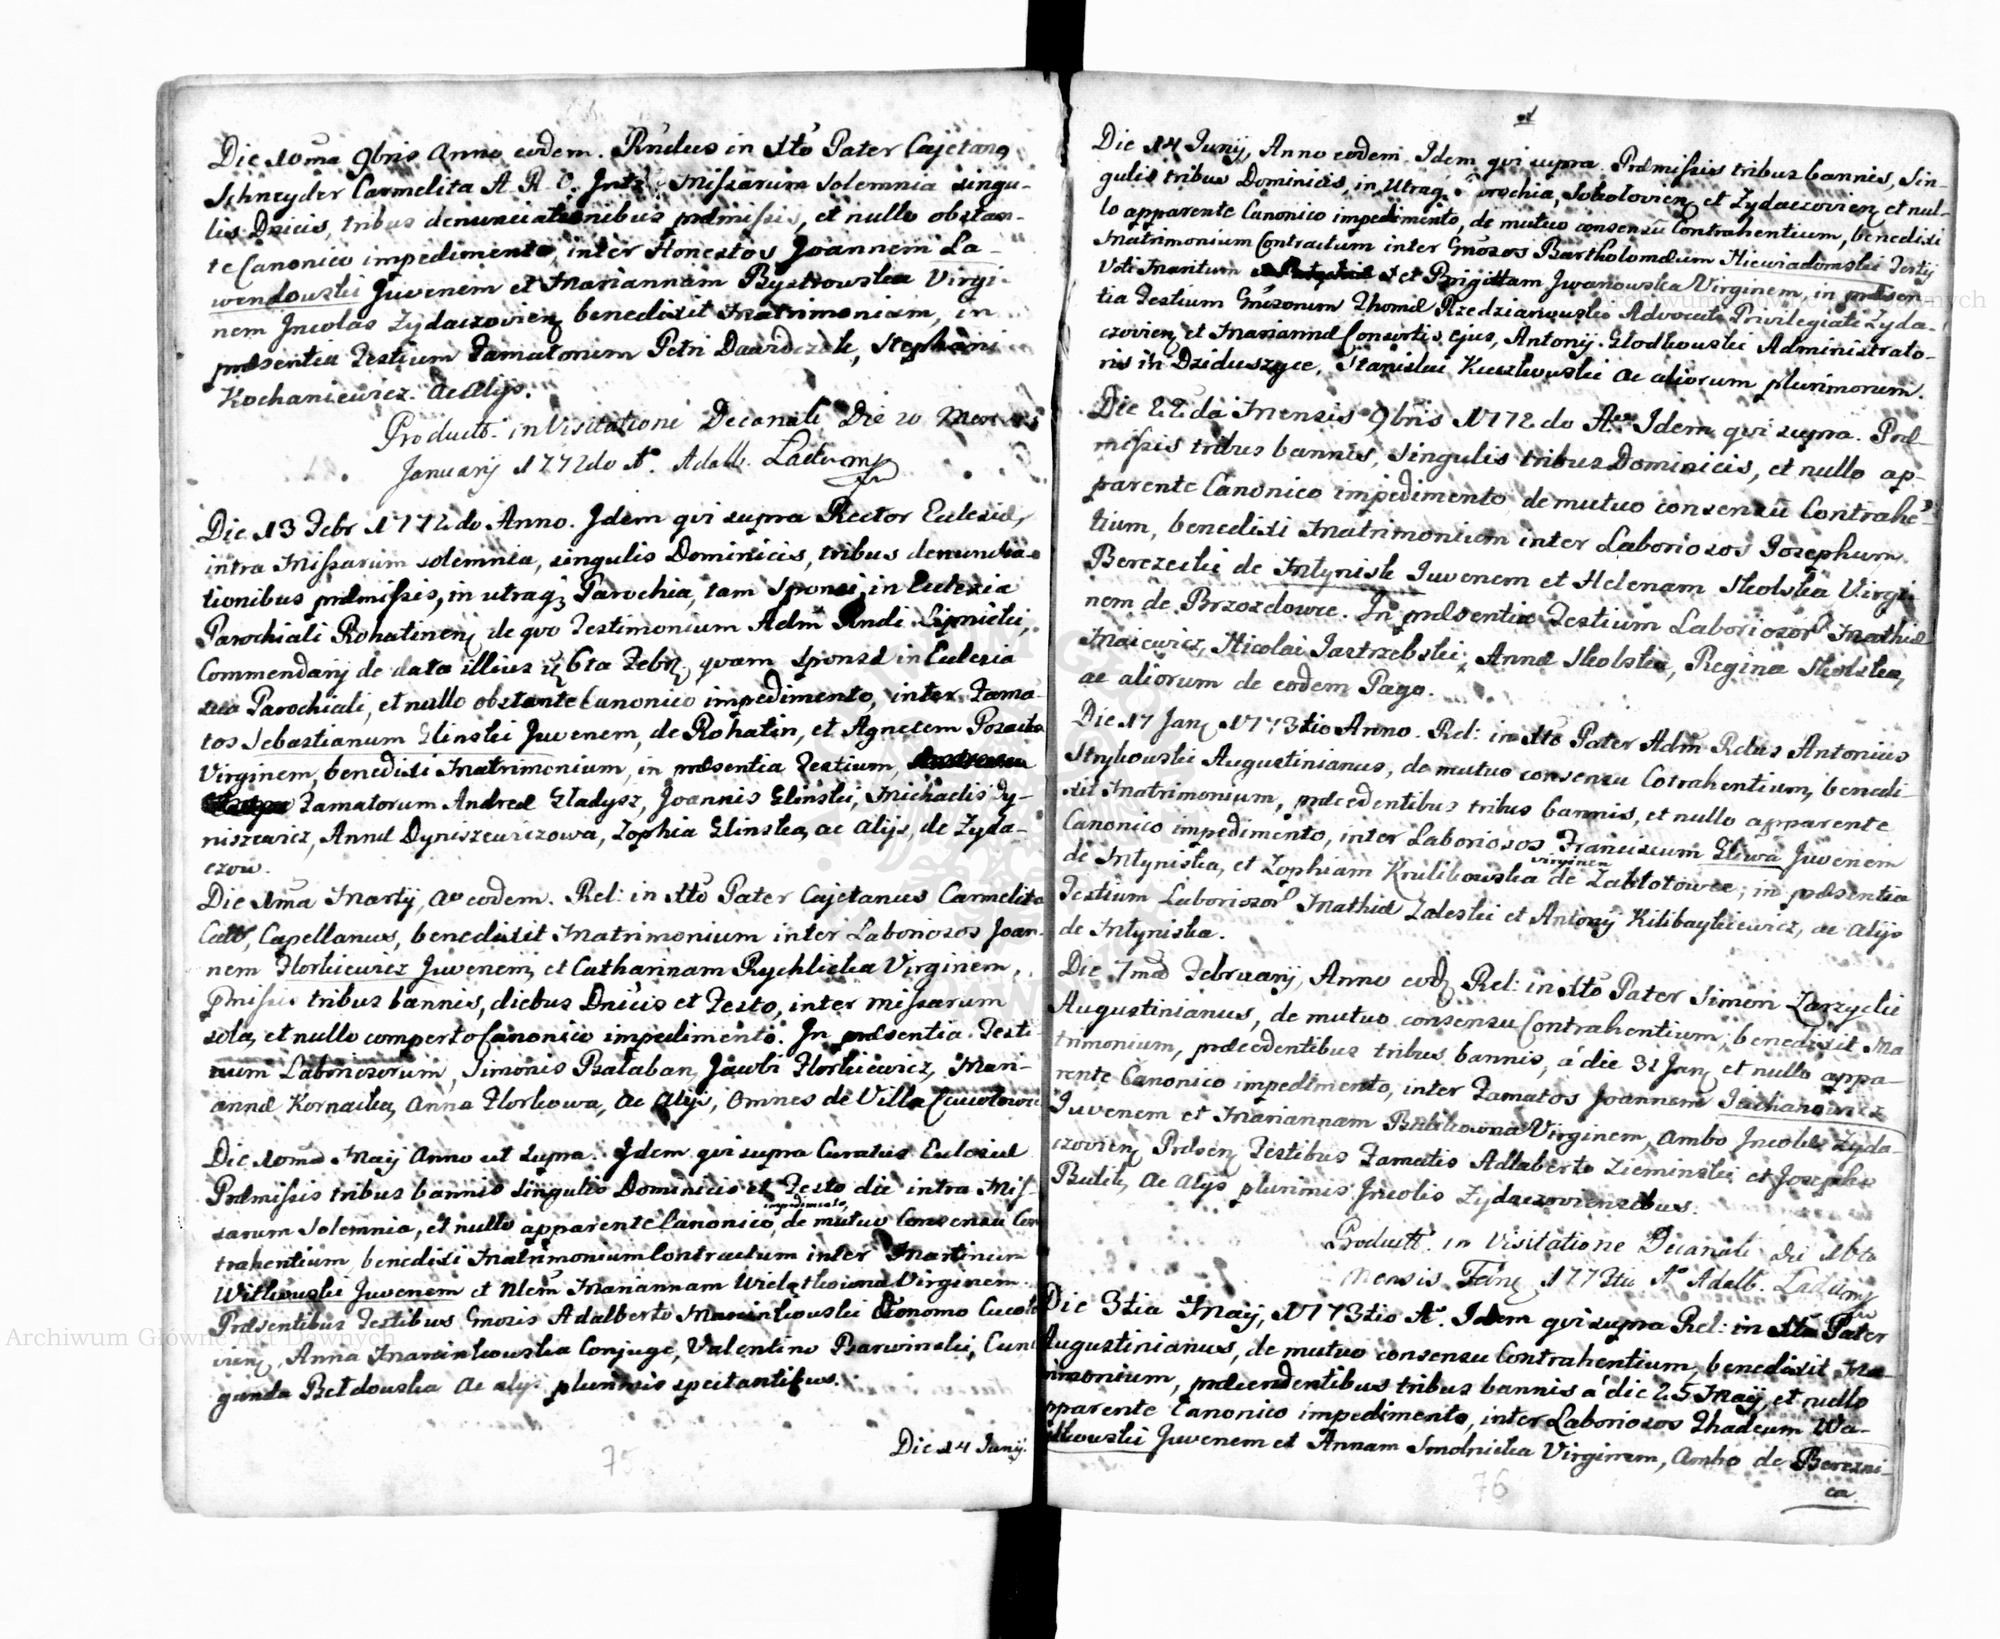 Die 10ma 9bris Anno eodem. Rndus in Xto Pater Cajetang
Schneyder Carmelita A. R. O. Intr Missarum solemnia singu-
lis Dnicis, tribus denunciationibus præmissis, et nullo obstan-
te Canonico impedimento, inter Honestos Joannem La-
wendowski Juvenem et Mariannam Bystrowska Virgi-
nem Incolas Zydaczovien benedixit Matrimonium, in
præsentia Testium Famatorum Petri Daardczak, Stephani
Kochaniewicz. ac Alijs.
Product. in Visitatione Decanali Die 20 Mensis
Januarij 1772do Ao. Adalb.
Die 13 Febr 1772do Anno. Idem qvi supra Rector Eclesiæ,
intra Missarum solemnia, singulis Dominicis, tribus denuncia-
tionibus præmissis, in utraq; Parochia, tam Sponsi, in Eclesia
Parochiali Rohatinen, de qvo Testimonium Adm Rndi Lipnicki,
Commendarij de data illius 6ta Febr, qvam Sponsæ in Eclesia
sua Parochiali, et nullo obstante Canonico impedimento, inter Fama-
tos Sebastianum Glinski Juvenem, de Rohatin, et Agnetem
Virginem, benedixi Matrimonium, in præsentia Testium,
Famatorum Andreæ Gladysz, Joannis Glinski, Michaelis Dy-
niszewicz, Annæ Dyniszewiczowa, Zophia Glinska, ac Alijs, de Zyda-
czow.
Die 1ma Martij, Ao eodem. Rel: in Xto Pater Cajetanus Carmelita
Calc, Capellanus, benedixit Matrimonium inter Laboriosos Joan-
nem Horkiewicz Juvenem, et Catharinam Rychlicka Virginem,
præmissis tribus bannis, diebus Dnicis et Festo, inter missarum
sola, et nullo comperto Canonico impedimento. In præsentia Testi-
um Laboriosorum, Simonis Bałaban, Jacobi Horkiewicz, Mari-
annæ Kornacka, Anna Horkowa, ac Alijs, omnes de Villa
Die 10ma Maij Anno ut supra. Idem qvi supra Curatus Eclesiæ
Præmissis tribus bannis singulis Dominicis et Festo die intra Mis-
impedimento,
sarum Solemnia, et nullo apparente Canonico, de mutuo Consensu Con
trahentium, benedixi Matrimonium Contractum inter Martinum
Witkowski Juvenem et Mariannam Virginem.
Præsentibus Testibus Gnosis Adalberto Marcinkowski Œconomo
Anna Marcinkowska Conjuge, Valentino Barwinski, Cuni
gunda Bełdowska ac alys plurimis spectantibus.
Die 14 Junij.
75
Die 14 Junij, Anno eodem. Idem qvi supra. Præmissis tribus bannis, Sin-
gulis tribus Dominicis, in Utraq Parochia, Sokolovien et Zydaczovien, et nul-
lo apparente Canonico impedimento, de mutuo consensu Contrahentium, benedixi
Matrimonium Contractum inter Gnosos Bartholomæum Niewiadomski
Voti Maritum et Brigittam Jwanowska Virginem, in præsen-
tia Testium Gnosorum Thomæ Rzedzianowski Advocati Privilegiati Zyda-
czovien, et Mariannæ Consortis ejus, Antonij Głodkowski Administrato-
ris in Dziduszyce, Stanislai Kuszkowski ac aliorum plurimorum.
Die 22da Mensis 9bris 1772do Ao. Idem qvi supra. Præ-
missis tribus bannis, singulis tribus Dominicis, et nullo ap-
parente Canonico impedimento de mutuo consensu Contrahe-
tium, benedixi Matrimonium inter Laboriosos Josephum
Berezecki de Młyniska Juvenem et Helenam Skolska Virgi-
nem de Brzozdowce. In præsentia Testium Laborioror Mathiæ
Maiewicz, Nicolai Jastrzebski, Annæ Skolska, Regina Skolska,
ac aliorum de eodem Pago.
Die 17 Jan 1773tio Anno. Rel: in Xto Pater Adm Rdus Antonius
Strykowski Augustinianus, de mutuo consensu Cotrahentium, benedi-
xit Matrimonium, præcedentibus tribus bannis, et nullo apparente
Canonico impedimento, inter Laboriosos Franciscum Gliwa Juvenem
virginem
de Młyniska, et Zophiam Krulikowska de Zabłotowce, in præsentia
Testium Laborioror Mathiæ Zaleski et Antonij Kilibaykiewicz, ac alijs
de Młyniska.
Die 7ma Februarij, Anno eod Rel: in Xto Pater Simon Zarzycki
Augustinianus, de mutuo consensu Contrahentium, benedixit Ma
trimonium, præcedentibus tribus bannis, á die 31 Jan et nullo appa-
rente Canonico impedimento, inter Famatos Joannem
Juvenem et Mariannam Bulikowna Virginem, ambo Incolis Zyda-
czovien, Præsen Testibus Famatis Adlaberto Zieminski et Josepho
Bulik, ac Alijs plurimis Incolis Zydaczoviensibus.
Product. in Visitatione Decanali die
Mensis 1773tio Ao Adalb.
Die 3tia Maij, 1773tio Ao. Idem qvi supra Rel: in Xto Pater
Augustinianus, de mutuo consensu Contrahentium, benedixit Ma-
rimonium, præcendentibus tribus bannis á die 25 Maij, et nullo
pparente Canonico impedimento, inter Laboriosos Thadeum Wa-
lkowski Juvenem et Annam Smolnicka Virginem, Ambo de Berezni-
ca.
76
Archiwum Główne Akt Dawnych
Archiwum Główne Akt Dawnych